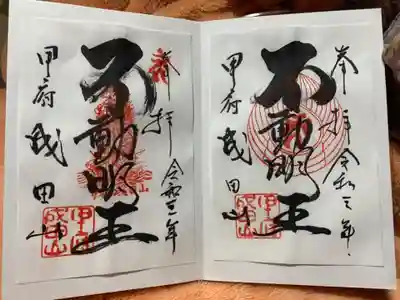 奉拝
令和三年
不動明王
甲府
成田山
奉拝
令和三年
不動明王
甲府
成田山